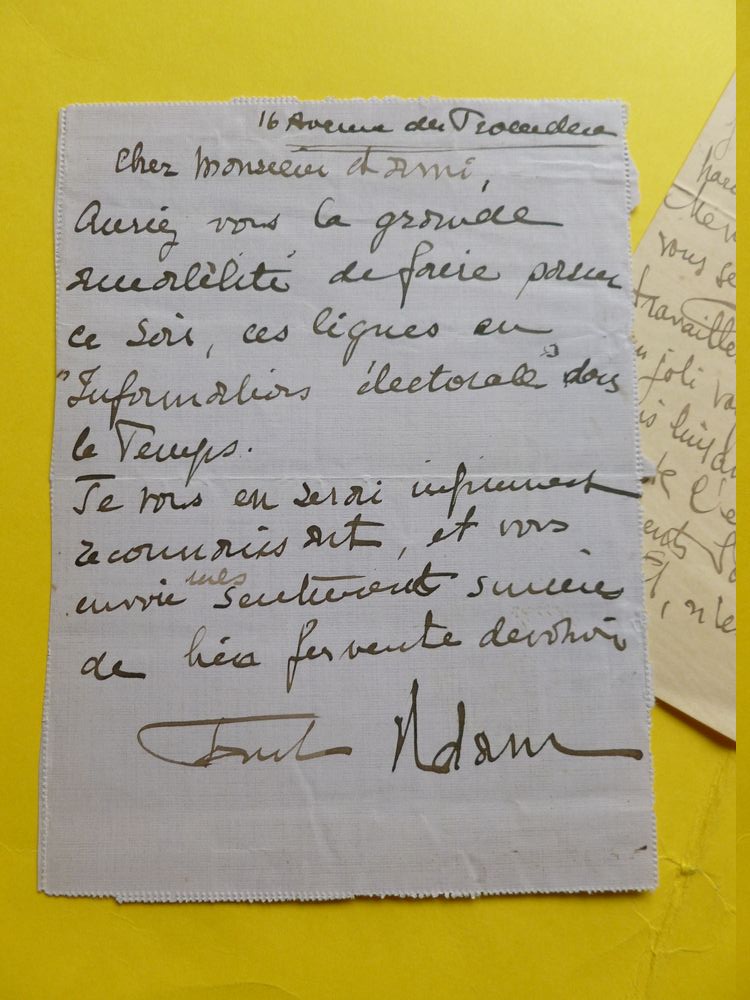 16 Avenue du Trocadero
Cher Monsieur et ami,
Auriez vous la grande
amabilité de faire passer
ce soir, ces lignes en
"Informations électorales" dans
le Temps.
Je vous en serai infiniment
reconnaissant, et vous
envoie mes sentiments sincères
de très fervente dévotion
Paul Adam
vous se
travaille
joli